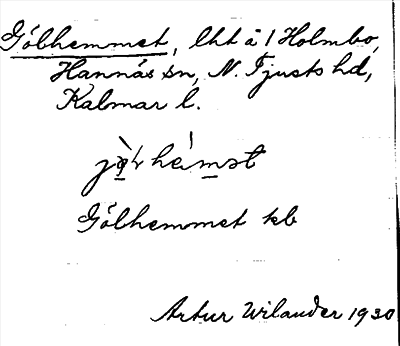 Gölhemmet, lht å 1 Holmbo,
Hannäs sn, N. Tjusts hd,
Kalmar l.
Gölhemmet kb
Artur Wilander 1930